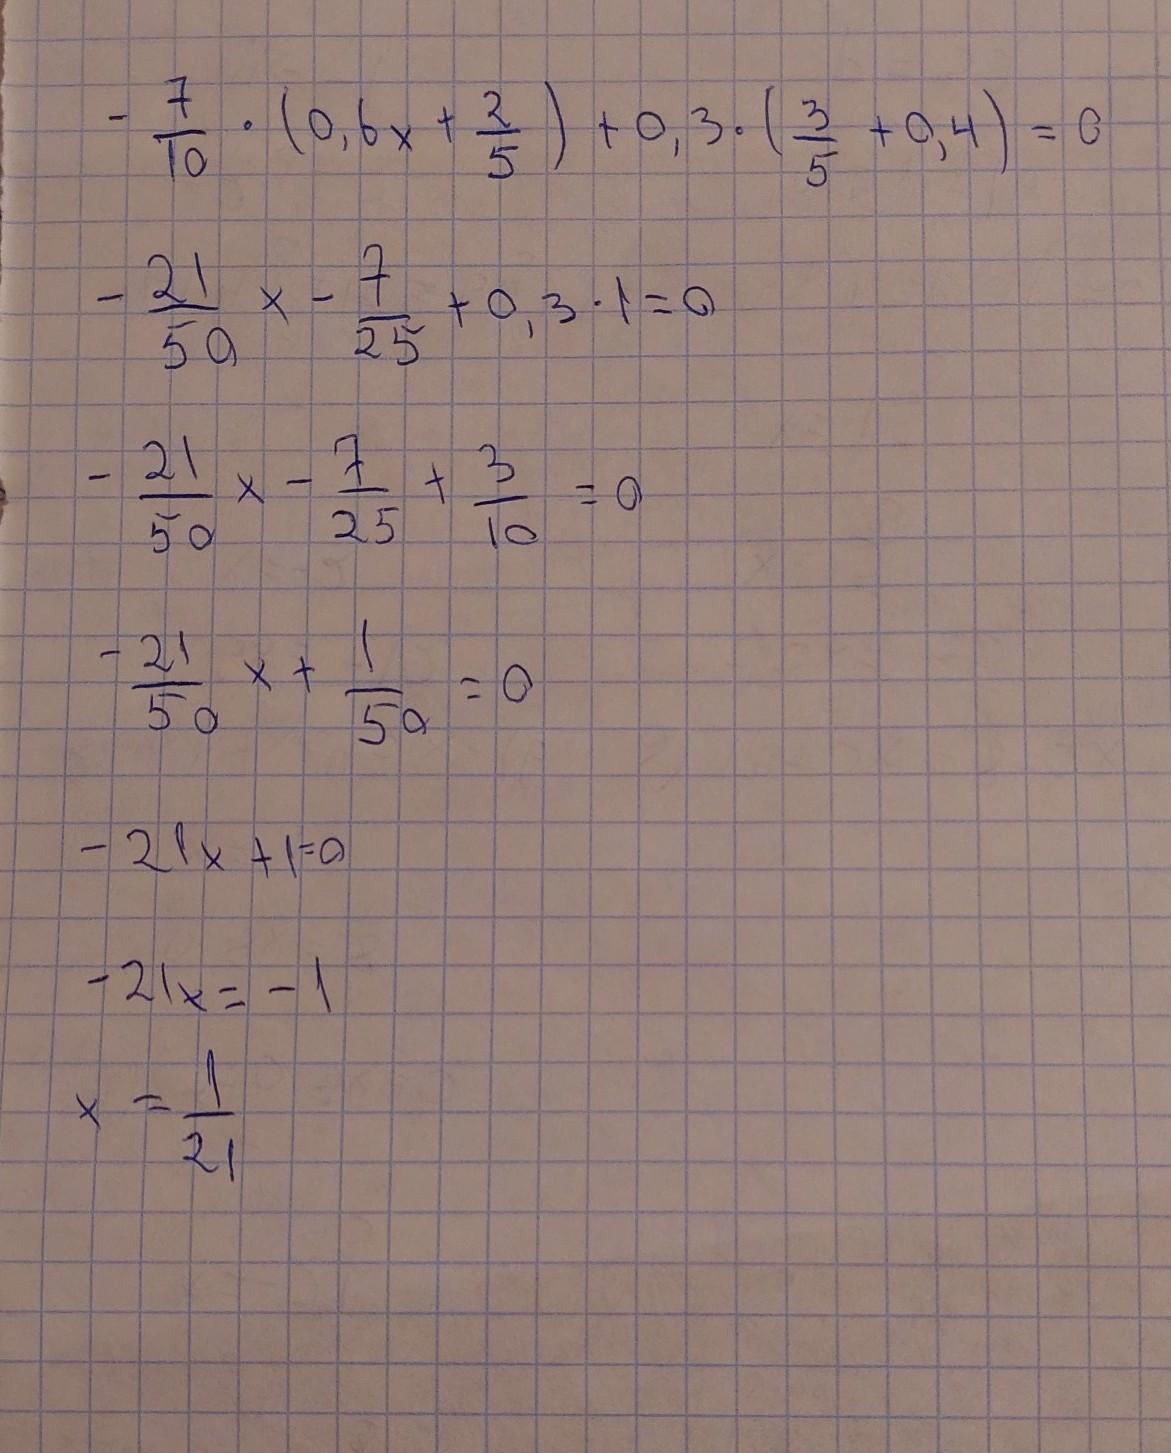 - 7/10 · (0,6x + 2/5) + 0,3 · (3/5 + 0,4) = 0
- 21/50 x - 7/25 + 0,3 · 1 = 0
- 21/50 x - 7/25 + 3/10 = 0
- 21/50 x + 1/50 = 0
- 21x + 1 = 0
- 21x = - 1
x = 1/21